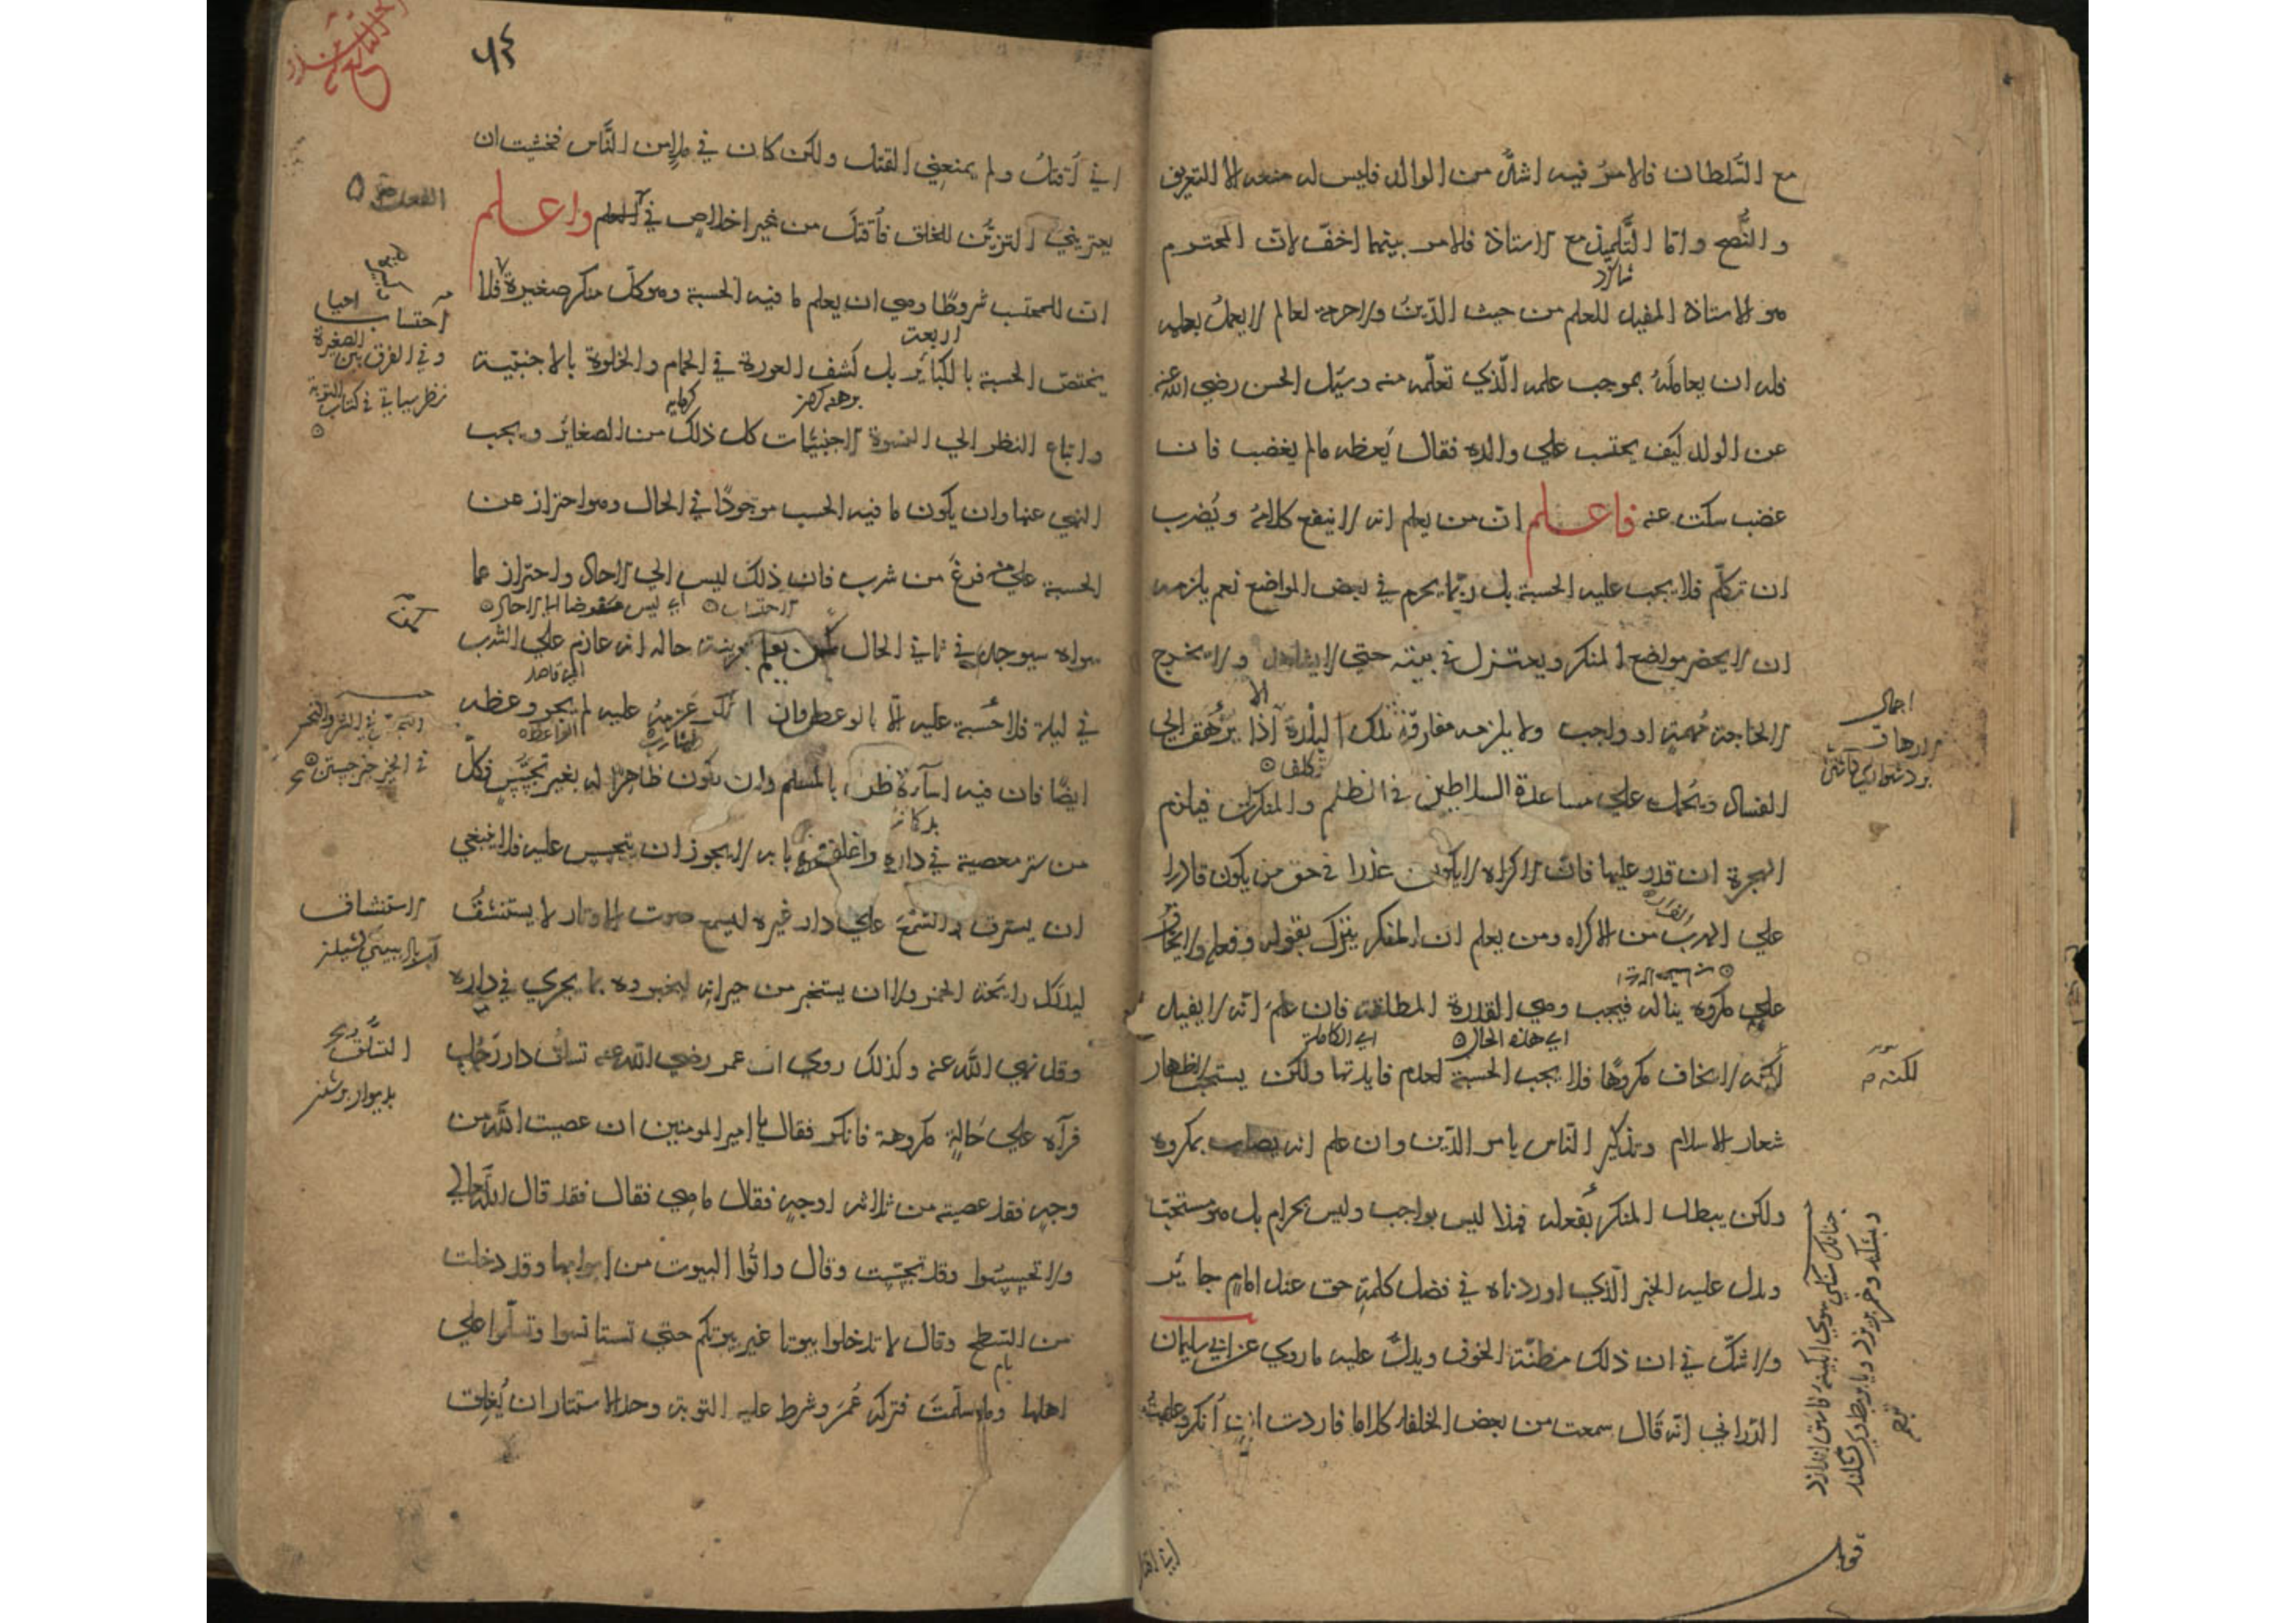 مع السلطان فالامر فيه اشد من الوالد فليس له منعه الا التعريف
والنصح واما التلميذ مع الاستاذ فالامر بينهما اخف لان المحترم
شاكرد
هو الاستاذ المفيد للعلم من حيث الدين ولا حرمة لعالم لا يعمل بعلمه
فله ان يعامله بموجب علمه الذي تعلمه منه وسئل الحسن رضي الله عنه
عن الولد كيف يحتسب علي والده فقال يعظه مالم يغضب فان
غضب سكت عنه فاعلم ان من يعلم انه لا ينفع كلامه ويضرب
ان تكلم فلا يجب عليه الحسبة بل ربما يحرم في بعض المواضع نعم يلزمه
ان لا يحضر مواضع المنكر ويعتزل في بيته حتي لا يشاهد ولا يخرج
الا
الا لحاجة مهمة او واجب ولا يلزمه مفارقة تلك البلدة اذا يرهق الي
تكلف
الفساد ويحمل علي مساعدة السلاطين في الظلم والمنكرات فيلزم
الهجرة ان قدر عليها فان الاكراه لا يكون عذرا في حق من يكون قادرا
الفرار
علي الهرب من الاكراه ومن يعلم ان المنكر يترك بقوله وفعله ولا يخاف
علي مكروه يناله فيجب وهي القدرة المطلقة فان علم انه لا يفيد
اي هذه الحال
اي الكاملة
لكنه لا يخاف مكروها فلا يجب الحسبة لعدم فايدتها ولكن يستحب لاظهار
شعار الاسلام وتذكير الناس بامر الدين وان علم انه يصاب بمكروه
ولكن يبطل المنكر بفعله فهذا ليس بواجب وليس بحرام بل هو مستحب
ويدل عليه الخبر الذي اوردناه في فضل كلمة حق عند امام جاير
ولا شك في ان ذلك مظنة الخوف ويدل عليه ما روي عن ابي سليمان
الداراني انه قال سمعت من بعض الخلفاء كلاما فاردت ان انكر وعلمت
لكنه
٥٣٤
اني اقتل ولم يمنعني القتل ولكن كان في ملاء من الناس فخشيت ان
يعتريني التزين للخلق فاقتل من غير اخلاص في العلم واعلم
ان للمحتسب شروطا وهي ان يعلم ما فيه الحسبة وهو كل منكر صغيرة فلا
اربعة
يختص الحسبة بالكباير بل كشف العورة في الحمام والخلوة بالاجنبية
واتباع النظر الي النسوة الاجنبيات كل ذلك من الصغاير ويجب
النهي عنها وان يكون ما فيه الحسب موجودا في الحال وهو احتراز عن
الحسبة علي من فرغ من شرب فان ذلك ليس الي الاحاد واحتراز عما
الاحتساب اي ليس مفوضا الي الاحاد
سواه سيوجد في ثاني الحال كمن يعلم بقرينة حاله انه عازم علي الشرب
اي قاصد
في ليلة فلا حسبة عليه الا بالوعظ فان انكر عزمه عليه لم يجز وعظه
الواعظ
ايضا فان فيه اساءة ظن بالمسلم وان يكون ظاهرا له بغير تجسس فكل
من ستر معصية في داره واغلق بابه لا يجوز ان يتجسس عليه فلا ينبغي
ان يسترق السمع علي دار غيره ليسمع صوت الاوتار لا يستنشق
ليدرك رايحة الخمر ولا ان يستخبر من جيرانه ليخبروه بما يجري في داره
وقد نهي الله عنه وكذلك روي ان عمر رضي الله عنه تسلق دار رجل
فرآه علي حالة مكروهة فانكر فقال يا امير المومنين ان عصيت الله من
وجه فقد عصيته من ثلاثة اوجه فقال ما هي فقال فقد قال الله تعالي
ولا تجسسوا وقد تجسست وقال واتوا البيوت من ابوابها وقد دخلت
من السطح وقال لا تدخلوا بيوتا غير بيوتكم حتي تستانسوا وتسلموا علي
بام
اهلها وما سلمت فتركه عمر وشرط عليه التوبة وحد الاستتار ان يغلق
احتساب
وفي الفرق بين الصغيرة
الاستنشاق
التسلق
بديوار برشدن